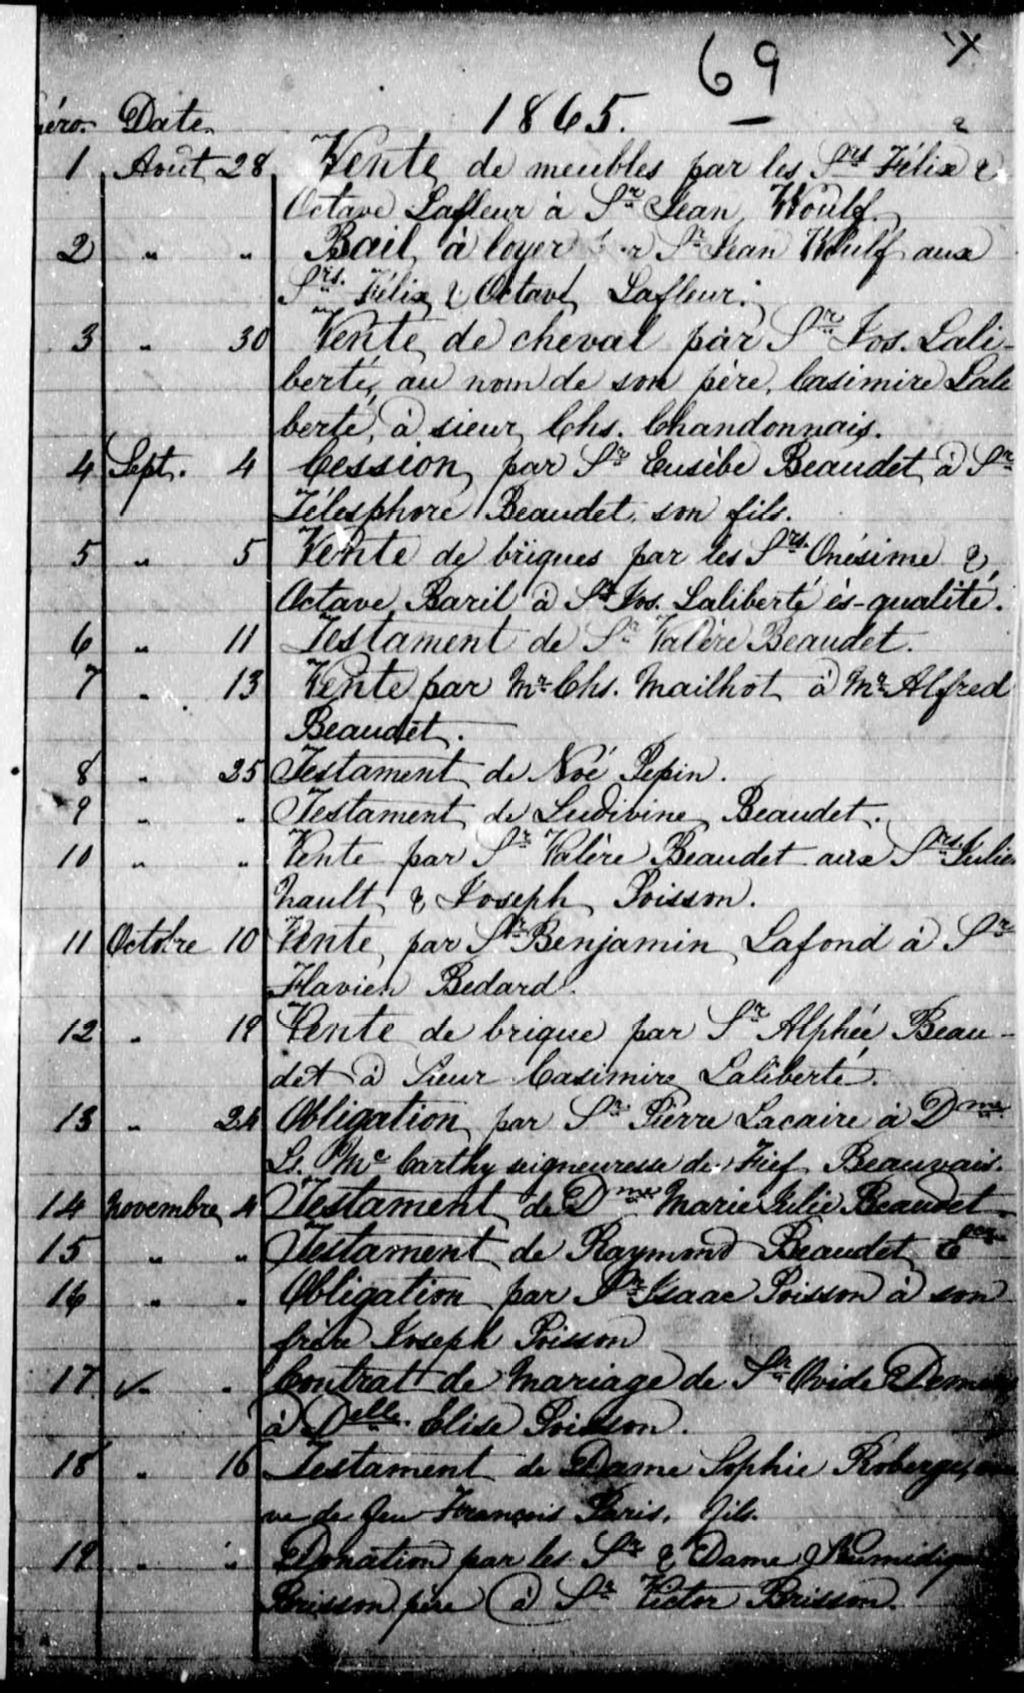 69
1865.
éro. Date.
1 Août 28 Vente de meubles par les Srs Félix &
Octave Lafleur à Sr Jean Woulf.
2 " " Bail à loyer Sr Jean Woulf aux
Srs. Félix & Octave Lafleur.
3 " 30 Vente de cheval par Sr Jos. Lali-
berté, au nom de son père, Casimire Lali
berté, à sieur Chs. Chandonnais.
4 Sept. 4 Cession par Sr Eusèbe Beaudet à Sr
Télesphore Beaudet, son fils.
5 " 5 Vente de briques par les Srs. Onésime &
Octave Baril à Sr Jos. Laliberté ès-qualité.
6 " 11 Testament de Sr Valère Beaudet.
7 " 13 Vente par Mr Chs. Mailhot à Mr Alfred
Beaudet.
8 " 25 Testament de Noé Pepin.
9 " " Testament de Ludivine Beaudet.
10 " " Vente par Sr Valère Beaudet aux Srs. Julien
hault & Joseph Poisson.
11 Octobre 10 Vente par Sr Benjamin Lafond à Sr
Flavien Bedard.
12 " 19 Vente de brique par Sr Alphée Beau-
det à Sieur Casimire Laliberté.
13 " 24 Obligation par Sr Pierre Lacaire à Dme
McCarthy seigneuresse de Fief Beauvais.
14 Novembre 4 Testament de Dme Marie Julie Beaudet.
15 " " Testament de Raymond Beaudet
16 " " Obligation par Sr Isaac Poisson à son
frère Joseph Poisson
17 " " Contrat de Mariage de Sr Ovide
à Delle. Elise Poisson.
18 " 16 Testament de Dame Sophie Roberge,
ve de feu François Paris, fils.
19 " " Donation par les Sr & Dame
Brisson père à Sr Victor Brisson.